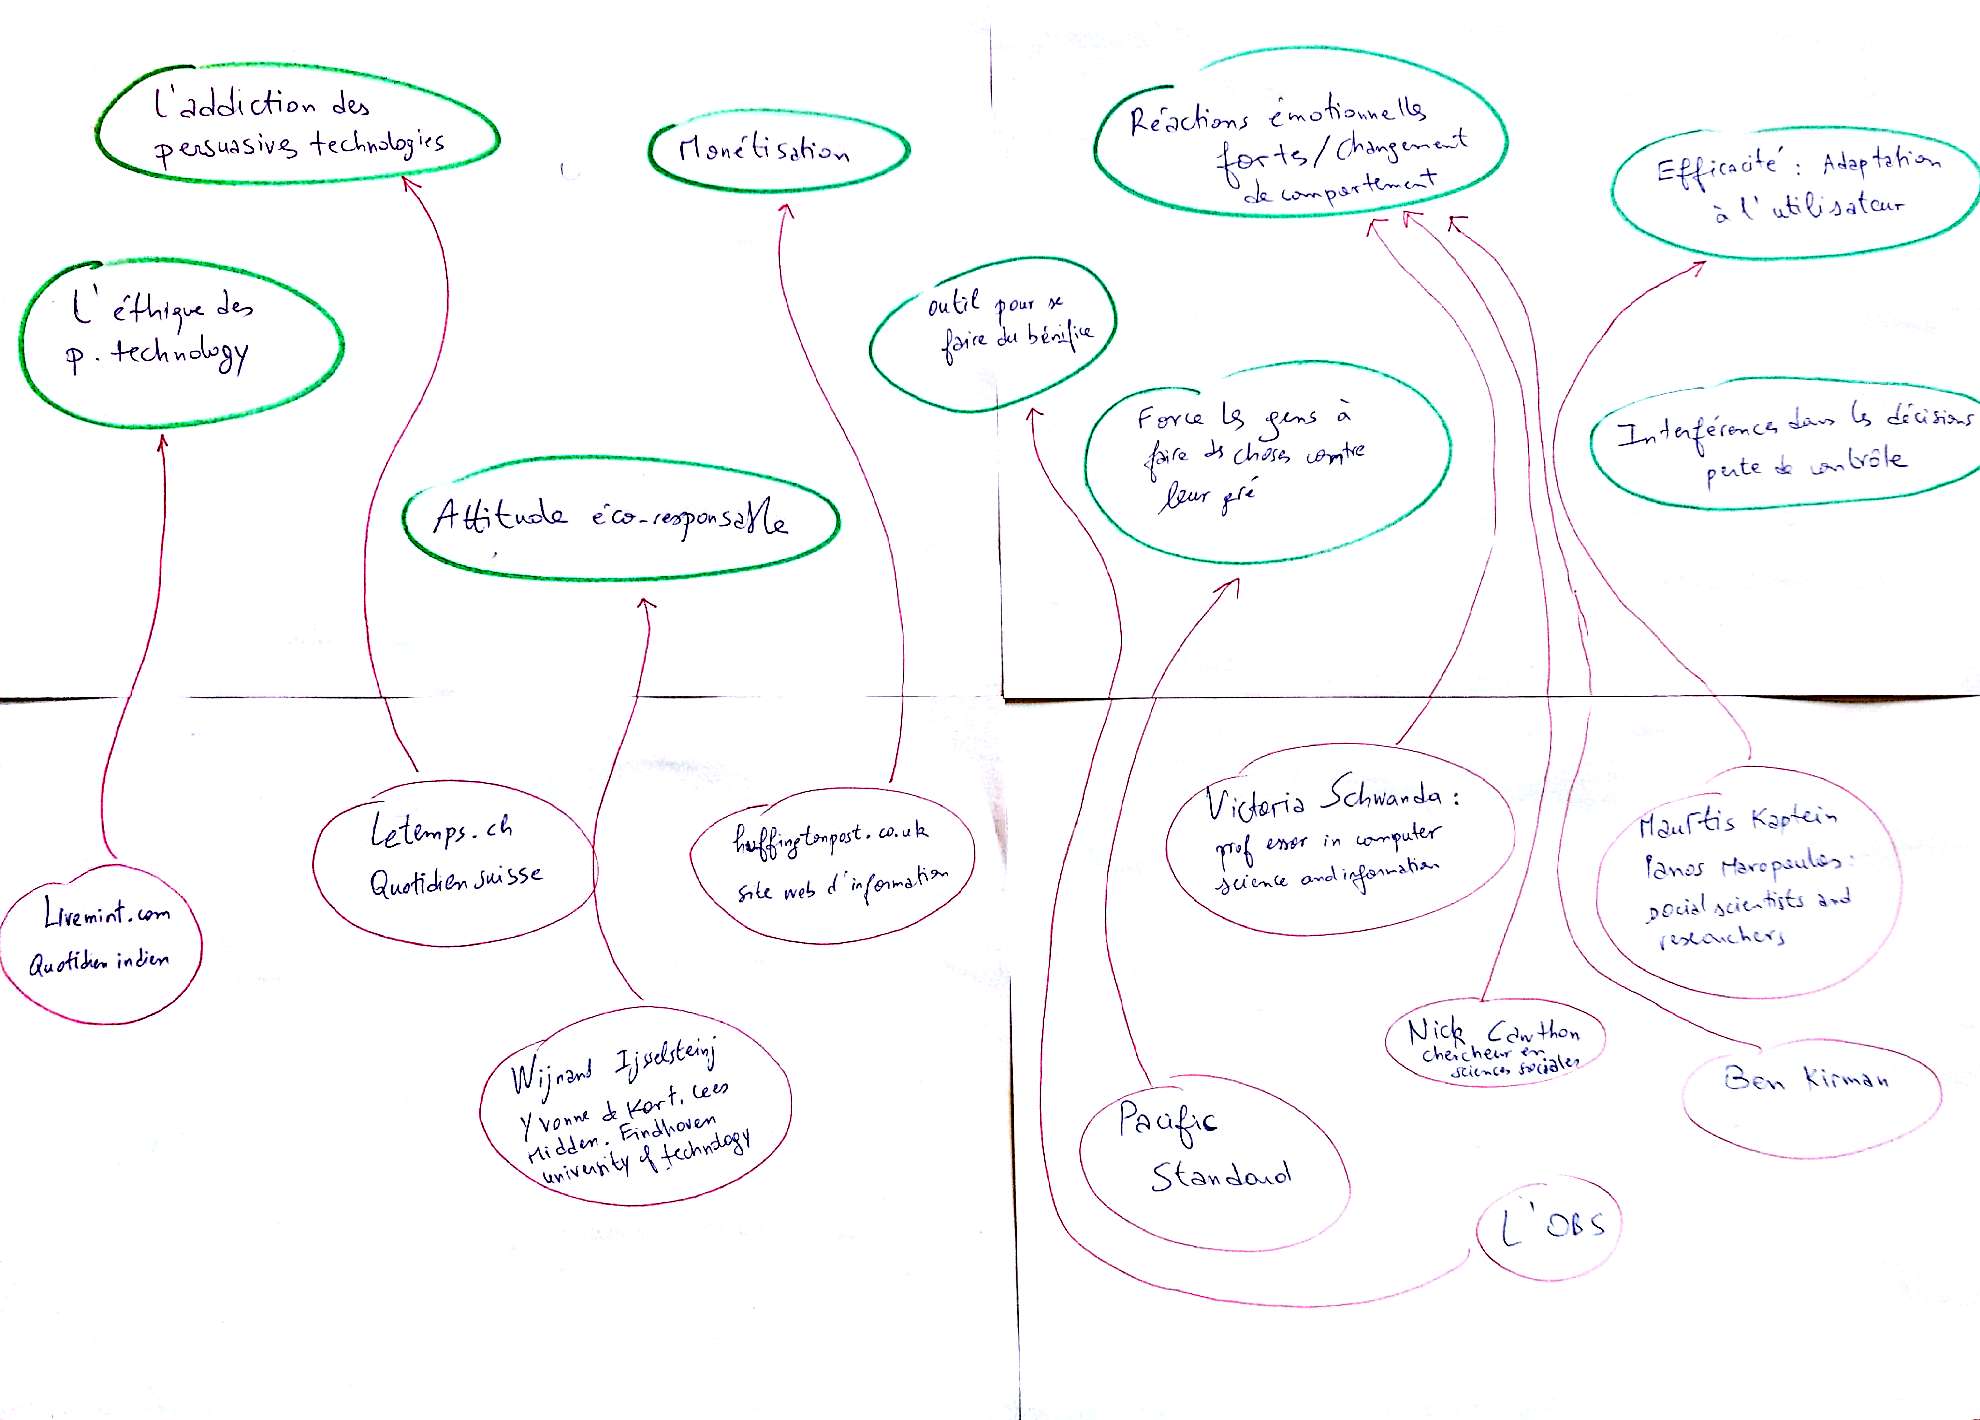 l'addiction des
persuasives technologies
Monétisation
Réactions émotionnelles
fortes/Changement
de comportement
Efficacité : Adaptation
à l'utilisateur
L'éthique des
p. technology
outil pour se
faire du bénifice
Force les gens à
faire des choses contre
leur gré
Interférences dans les décisions
perte de contrôle
Attitude éco-responsable
Letemps.ch
Quotidien suisse
huffingtonpost.co.uk
site web d'information
Victoria Schwanda :
professor in computer
science and information
Maurtis Kaptein
Panos Maropoulos :
social scientists and
researchers
Livemint.com
Quotidien indien
Wijnand Ijsselsteinj
Yvonne de Kort. Cees
Midden. Eindhoven
university of technology
Nick Cawthon
chercheur en
sciences sociales
Ben Kirman
Pacific
Standard
L'OBS